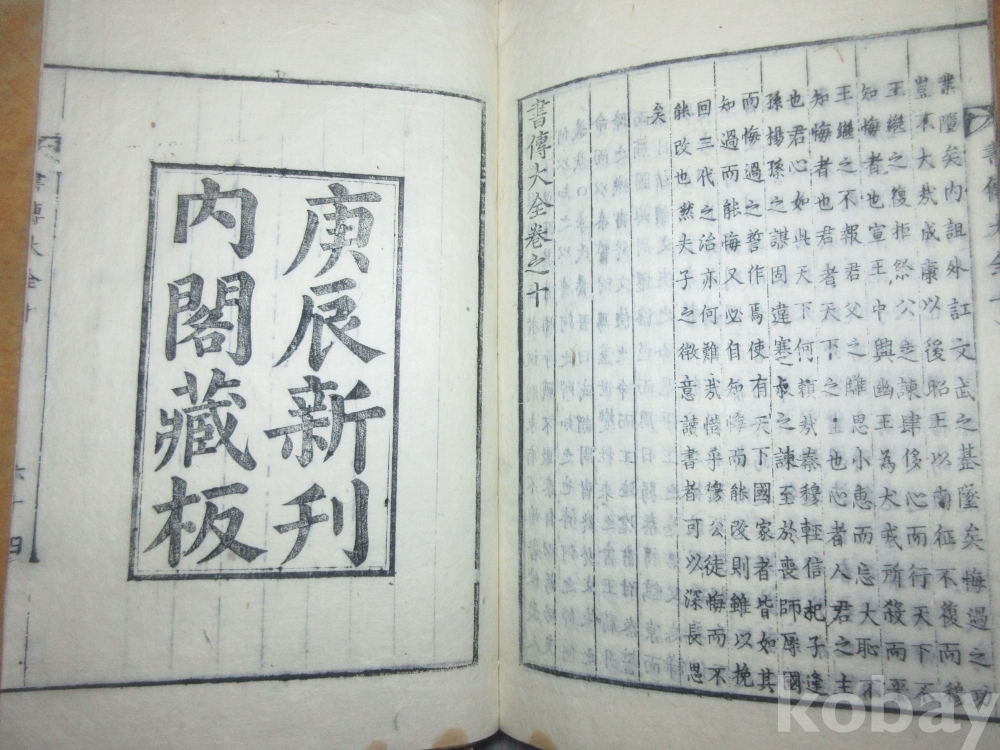 業墜矣內詛外訌文武之基墜矣悔過之功
豈不大哉成康以後昭王以南征不復而穆
王繼之復拒祭公之諫肆侈心而行天下不
知悔者也宣王中興幽王為犬戎所殺而平
王繼之不報君父之雖思小惠而忘大恥不
知悔者也君者天下之主也心者人君之主
也君心如此天下何賴哉秦穆輕信杞子逢
孫揚孫之謀因違蹇叔之諫至於喪師辱國
而悔過之誓作焉使有天下國家者皆如其
知過而能悔又必自知悔而能改則雖以挽
回三代之治亦何難哉惜乎穆公徒悔而不
能改也然夫子之微意讀書者可以深長思
矣
書傳大全卷之十
庚辰新刊
內閣藏板
書傳大全十
六十四
kobay